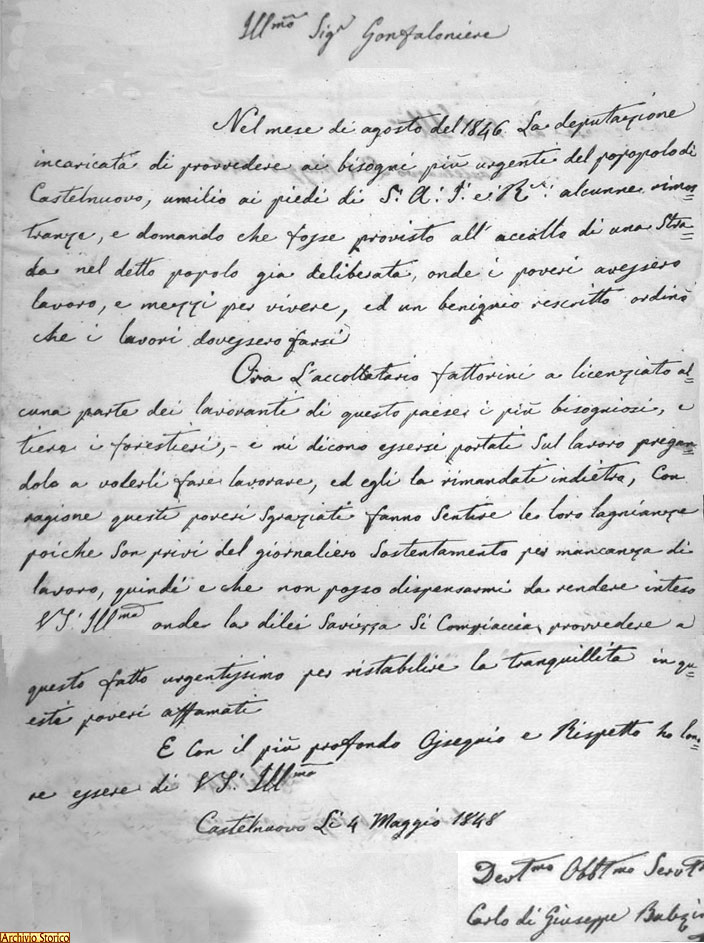 Ill.mo Sig.r Gonfaloniere
Nel mese di agosto del 1846. La deputazione
incaricata di provvedere ai bisogni più urgente del popopolo di
Castelnuovo, umilio ai piedi di S. A. I. e R. alcunne rimos=
tranze, e domando che fosse provisto all'accollo di una Stra=
da nel detto popolo gia deliberata, onde i poveri avessero
lavoro, e mezzi per vivere, ed un benignio rescritto ordinò
che i lavori dovessero farsi
Ora L'accollatario fattorini a licenziato al=
cuna parte dei lavoranti di questo paese i più bisogniosi, e
tiene i forestieri, - e mi dicono essersi portati Sul lavoro pregan=
dolo a volerli fare lavorare, ed egli la rimandati indietro, Con
ragione questi poveri Sgraziati fanno Sentire le loro lagnianze
poiche Son privi del giornaliero Sostentamento per mancanza di
lavoro, quindi e che non posso dispensarmi da rendere inteso
VS. Ill.ma onde la dilei Saviezza Si Compiaccia provvedere a
questo fatto urgentissimo per ristabilire la tranquillita in qu=
esti poveri affamati
E Con il più profondo Ossequio e Rispetto ho lon=
re essere di VS. Ill.ma
Castelnuovo Li 4 Maggio 1848
Devt.mo Obbt.mo Servt.
Carlo di Giuseppe
Archivio Storico